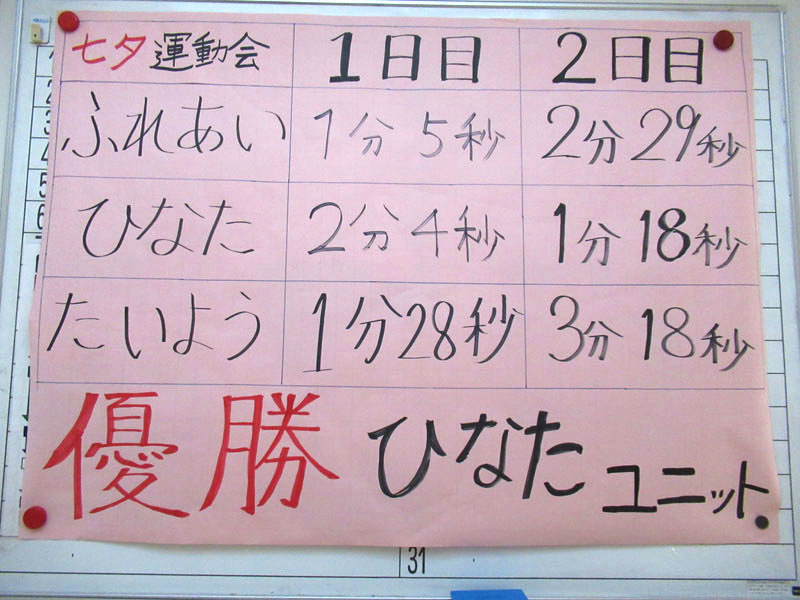 七夕運動会 1日目 2日目
ふれあい 1分5秒 2分29秒
ひなた 2分4秒 1分18秒
たいよう 1分28秒 3分18秒
優勝 ひなたユニット
2
3
4
5
6
31